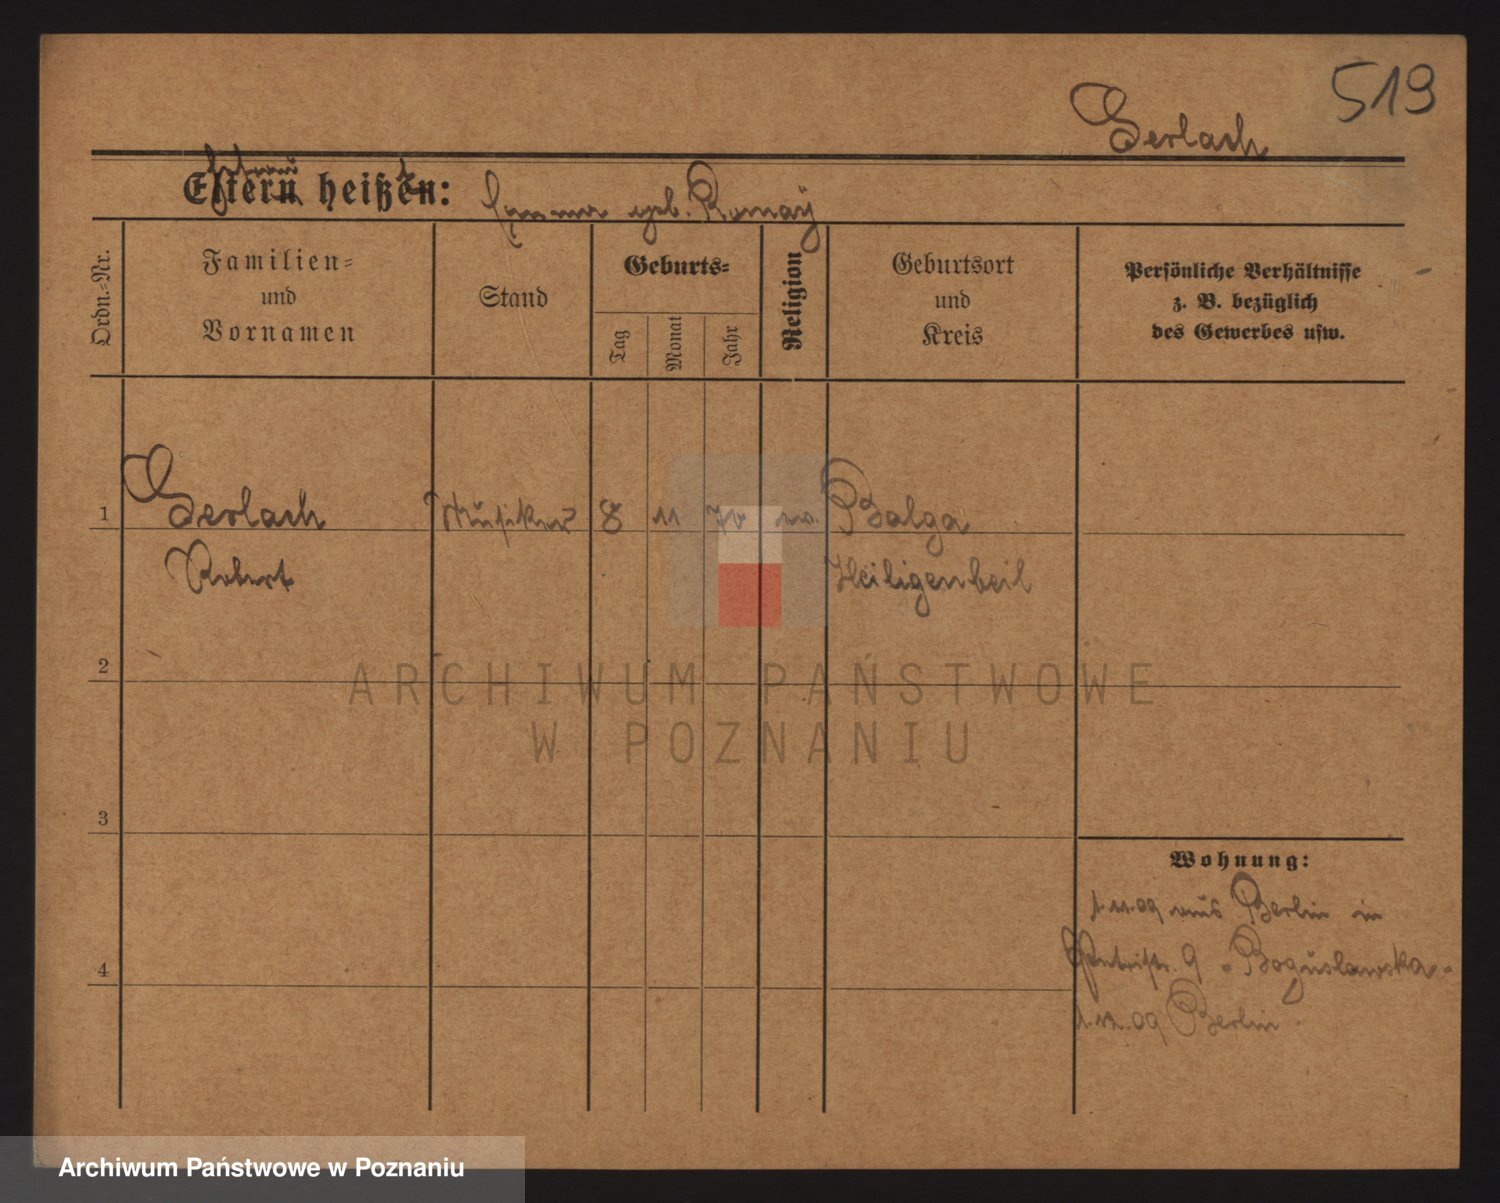 519
Gerlach
Eltern heißen:
Ehefrau heißt
Emma geb. Romaÿ
Ordn.-Nr.
Familien-
und
Vornamen
Stand
Geburts-
Tag
Monat
Jahr
Religion
Geburtsort
und
Kreis
Persönliche Verhältnisse
z. B. bezüglich
des Gewerbes usw.
1
Gerlach
Musiker
8
11
70
ev.
Balga
Robert
Heiligenbeil
2
ARCHIWUM PAŃSTWOWE
W POZNANIU
3
Wohnung:
1.11.09 aus Berlin in
Petristr. 9 - Boguslawska -
4
09 Berlin
Archiwum Państwowe w Poznaniu